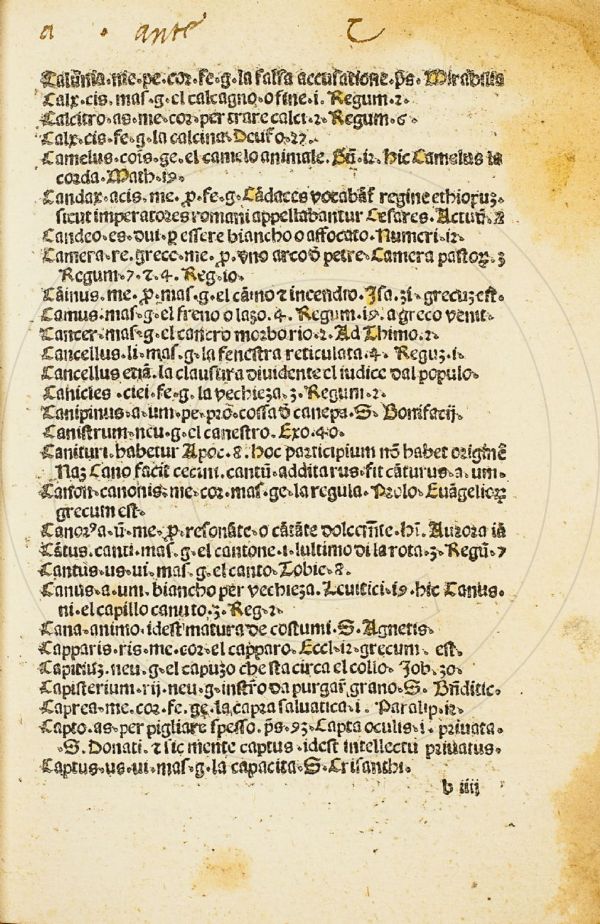 a · ante C
Calũnia·me·pe·cor·fe·g·la falsa accusatione·p̃s·Mirabilis
Calx·cis·mas·g·el calcagno·o fine·i·Regum·2·
Calcitro·as·me·cor·per trare calci·2·Regum·6·
Calx·cis·fe·g·la calcina·Deut̃o·27·
Camelus·cõis·ge·el camelo animale·Gñ·12·hic Camelus la
corda·Math·19·
Candax·acis·me·p̱·fe·g·Cãdaces vocabãt regine ethiopuꝫ·
sicut imperatores romani appellabantur Cesares·Actuũ·8
Candeo·es·dui·ꝑ essere biancho o affocato·Numeri·12·
Camera·re·grece·me·p̱·vno arco õ petre·Camera pastoꝝ·3
Regum·7·⁊·4·Reg·10·
Cãinus·me·p̱·mas·g·el cãino ⁊ incendio·Isa·31·grecuꝫ est·
Camus·mas·g·el freno o lazo·4·Regum·19·a greco venit·
Cancer·mas·g·el cancro morbo rio·2·Ad Thimo·2·
Cancellus·li·mas·g·la fenestra reticulata·4·Reguꝫ·1·
Cancellus etiã·la clausura diuidente el iudice dal populo·
Canicies·ciei·fe·g·la vechieza·3·Regum·2·
Canipinus·a·um·pe·pro·cossa õ canepa·S·Bonifacij·
Canistrum·neu·g·el canestro·Exo·40·
Canituri·habetur Apoc·8·hoc participium nõ habet originẽ
Naꝫ Cano facit cecini·cantũ·addita rus·fit cãturus·a·um·
Canon·canonis·me·cor·mas·ge·la regula·Prolo·Euãgelioꝝ
grecum est·
Canorꝰa·ũ·me·p̱·resonãte·o cãtãte dolcem̃te·hĩ·Aurora iã
Cãtus·canti·mas·g·el cantone·i·lultimo di la rota·3·Regũ·7
Cantus·us·ui·mas·g·el canto·Tobie·8·
Canus·a·um·biancho per vechieza·Leuitici·19·hic Canus·
ni·el capillo canuto·3·Reg·2·
Cana·animo·idest matura de costumi·S·Agnetis·
Capparis·ris·me·cor·el capparo·Eccl·12·grecum est·
Capitiuꝫ·neu·g·el capuzo che sta circa el collo·Job·30·
Capisterium·rij·neu·g·instrõ da purgar grano·S·Bñditic·
Caprea·me·cor·fe·ge·la capra saluatica·i·Paralip·12·
Capto·as·per pigliare spesso·p̃s·93·Capta oculis·i·priuata·
·S·Donati·⁊ sic mente captus·idest intellectu priuatus·
Captus·us·ui·mas·g·la capacita·S·Crisanthi·
b iiij